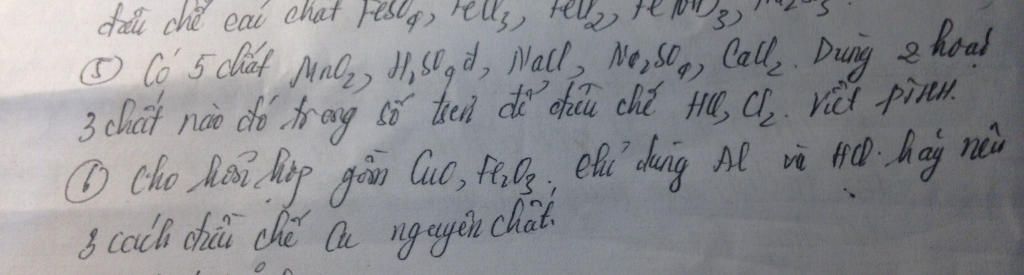 điều chế các chất FeSO4, FeCl3, FeCl2, Fe(OH)3,
⑤ Có 5 chất MnO2, H2SO4 đ, NaCl, Na2SO4, CaCl2. Dùng 2 hoặc
3 chất nào đó trong số trên để điều chế HCl, Cl2. Viết PTHH.
⑥ Cho hỗn hợp gồm CuO, Fe2O3. chỉ dùng Al và HCl. hãy nêu
3 cách điều chế Cu nguyên chất.